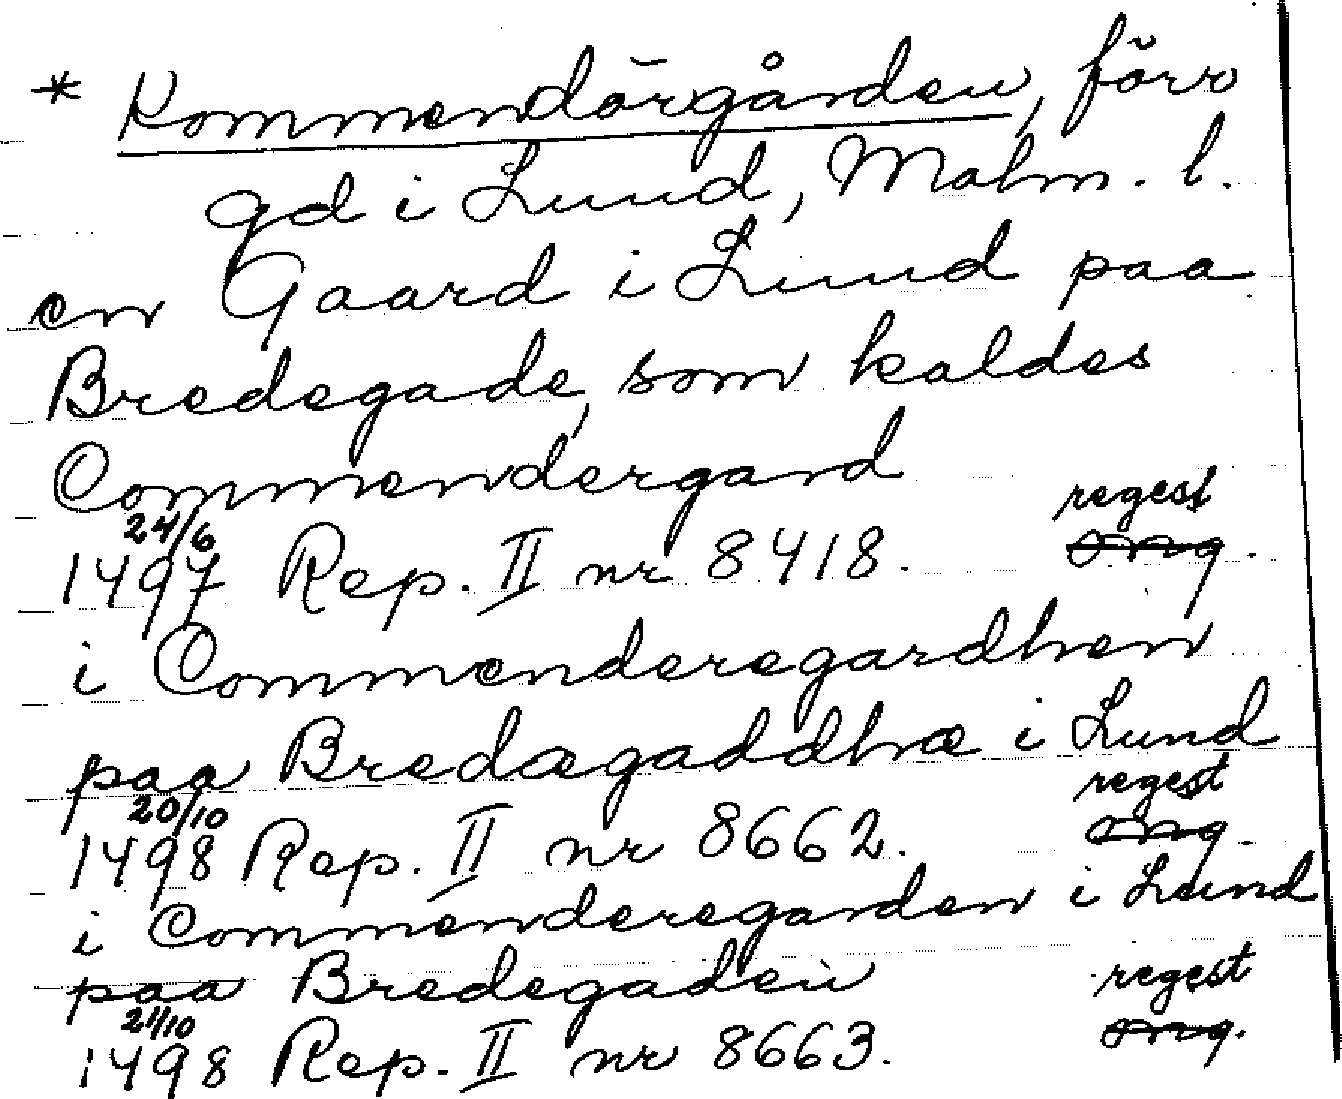 * Kommendörgården, förr
gd i Lund, Malm. l.
en Gaard i Lund paa
Bredegade, som kaldes
Commendergard
24/6 regest
1497 Rep. II nr 8418. omg.
i Commenderegardhen
paa Bredægaddhæ i Lund
20/10 regest
1498 Rep. II nr 8662. omg.
i Commenderegarden i Lund
paa Bredegaden
21/10 regest
1498 Rep. II nr 8663. omg.